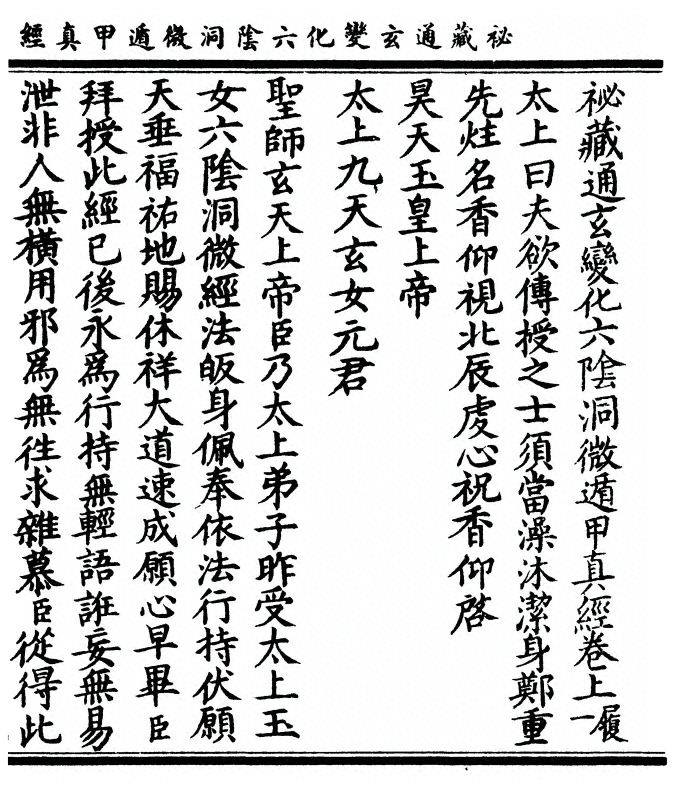 祕藏通玄變化六陰洞微遁甲真經
祕藏通玄變化六陰洞微遁甲真經卷上 履一
太上曰夫欲傳授之士須當澡沐潔身鄭重
先炷名香仰視北辰虔心祝香仰啓
昊天玉皇上帝
太上九天玄女元君
聖師玄天上帝臣乃太上弟子昨受太上玉
女六陰洞微經法皈身佩奉依法行持伏願
天垂福祐地賜休祥大道速成願心早畢臣
拜授此經已後永爲行持無輕語誑妄無易
泄非人無橫用邪爲無徃求雜慕臣從得此